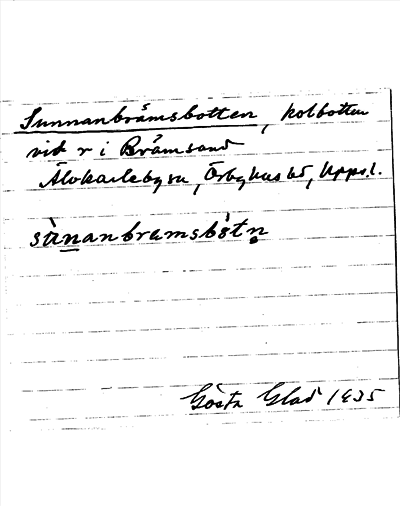 Sunnanbråmsbotten, kolbotten
vid r i Bråmsand
Älvkarleby sn, Örbyhus hd, Upps. l.
sùnanbramsbòtn̥
Gösta Glad 1935